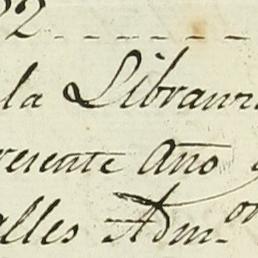 22
la Libranz
resente Año y
alles Adm.on